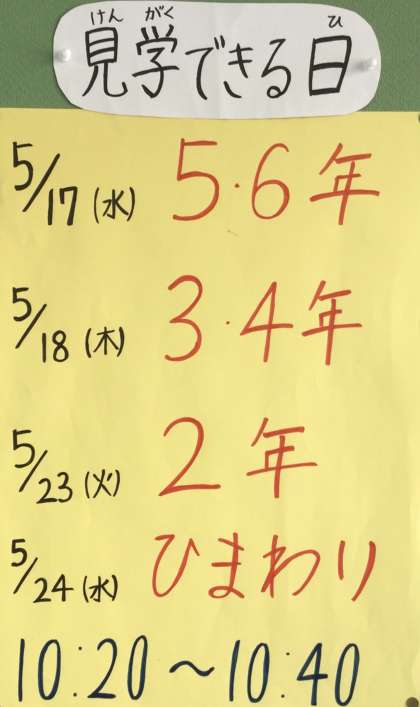 けん がく ひ
見学できる日
5/17(水) 5・6年
5/18(木) 3・4年
5/23(火) 2年
5/24(水) ひまわり
10:20～10:40